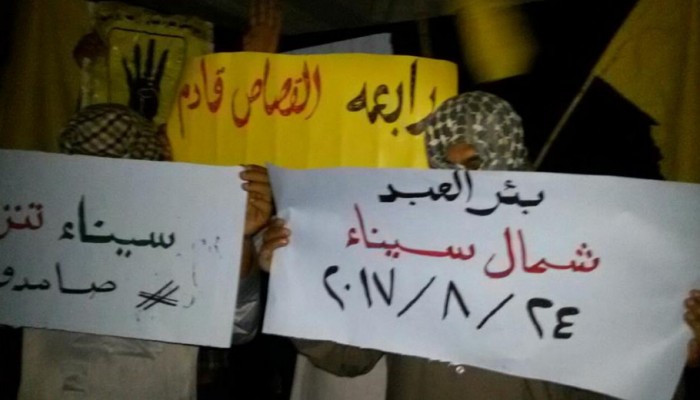 رابعه القصاص قادم
بئر العبد
شمال سيناء
٢٤/٨/٢٠١٧
سيناء تنز
# صامدو